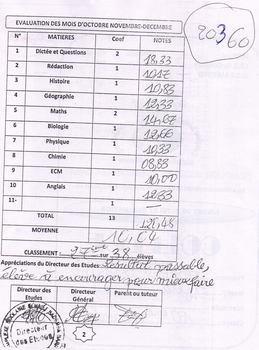 20360
EVALUATION DES MOIS D'OCTOBRE NOVEMBRE-DECEMBRE
N° MATIERES Coef NOTES
1 Dictée et Questions 2 18,33
2 Rédaction 1 10,17
3 Histoire 1 10,83
4 Géographie 1 12,33
5 Maths 2 14,67
6 Biologie 1 12,66
7 Physique 1 10,33
8 Chimie 1 08,83
9 ECM 1 10,00
10 Anglais 1 12,33
11-
TOTAL 13
MOYENNE
CLASSEMENT : 27ème sur 38 élèves
Appréciations du Directeur des Etudes: Résultat passable,
élève à encourager pour mieux faire
Directeur des Etudes Directeur Général Parent ou tuteur
Directeur
des Etudes
2